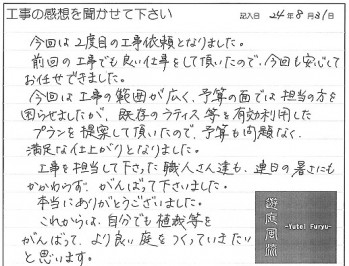 工事の感想を聞かせて下さい
記入日 24年8月31日
今回は2度目の工事依頼となりました。
前回の工事でも良い仕事をして頂いたので、今回も安心して
お任せできました。
今回は工事の範囲が広く、予算の面では担当の方を
困らせましたが、既存のラティス等を有効利用した
プランを提案して頂いたので、予算も問題なく、
満足な仕上がりとなりました。
工事を担当して下さった職人さん達も、連日の暑さにも
かかわらず、がんばって下さいました。
本当にありがとうございました。
これからは、自分でも植栽等を
がんばって、より良い庭をつくっていきたい
と思います。
遊庭風流
-Yutei Furyu-